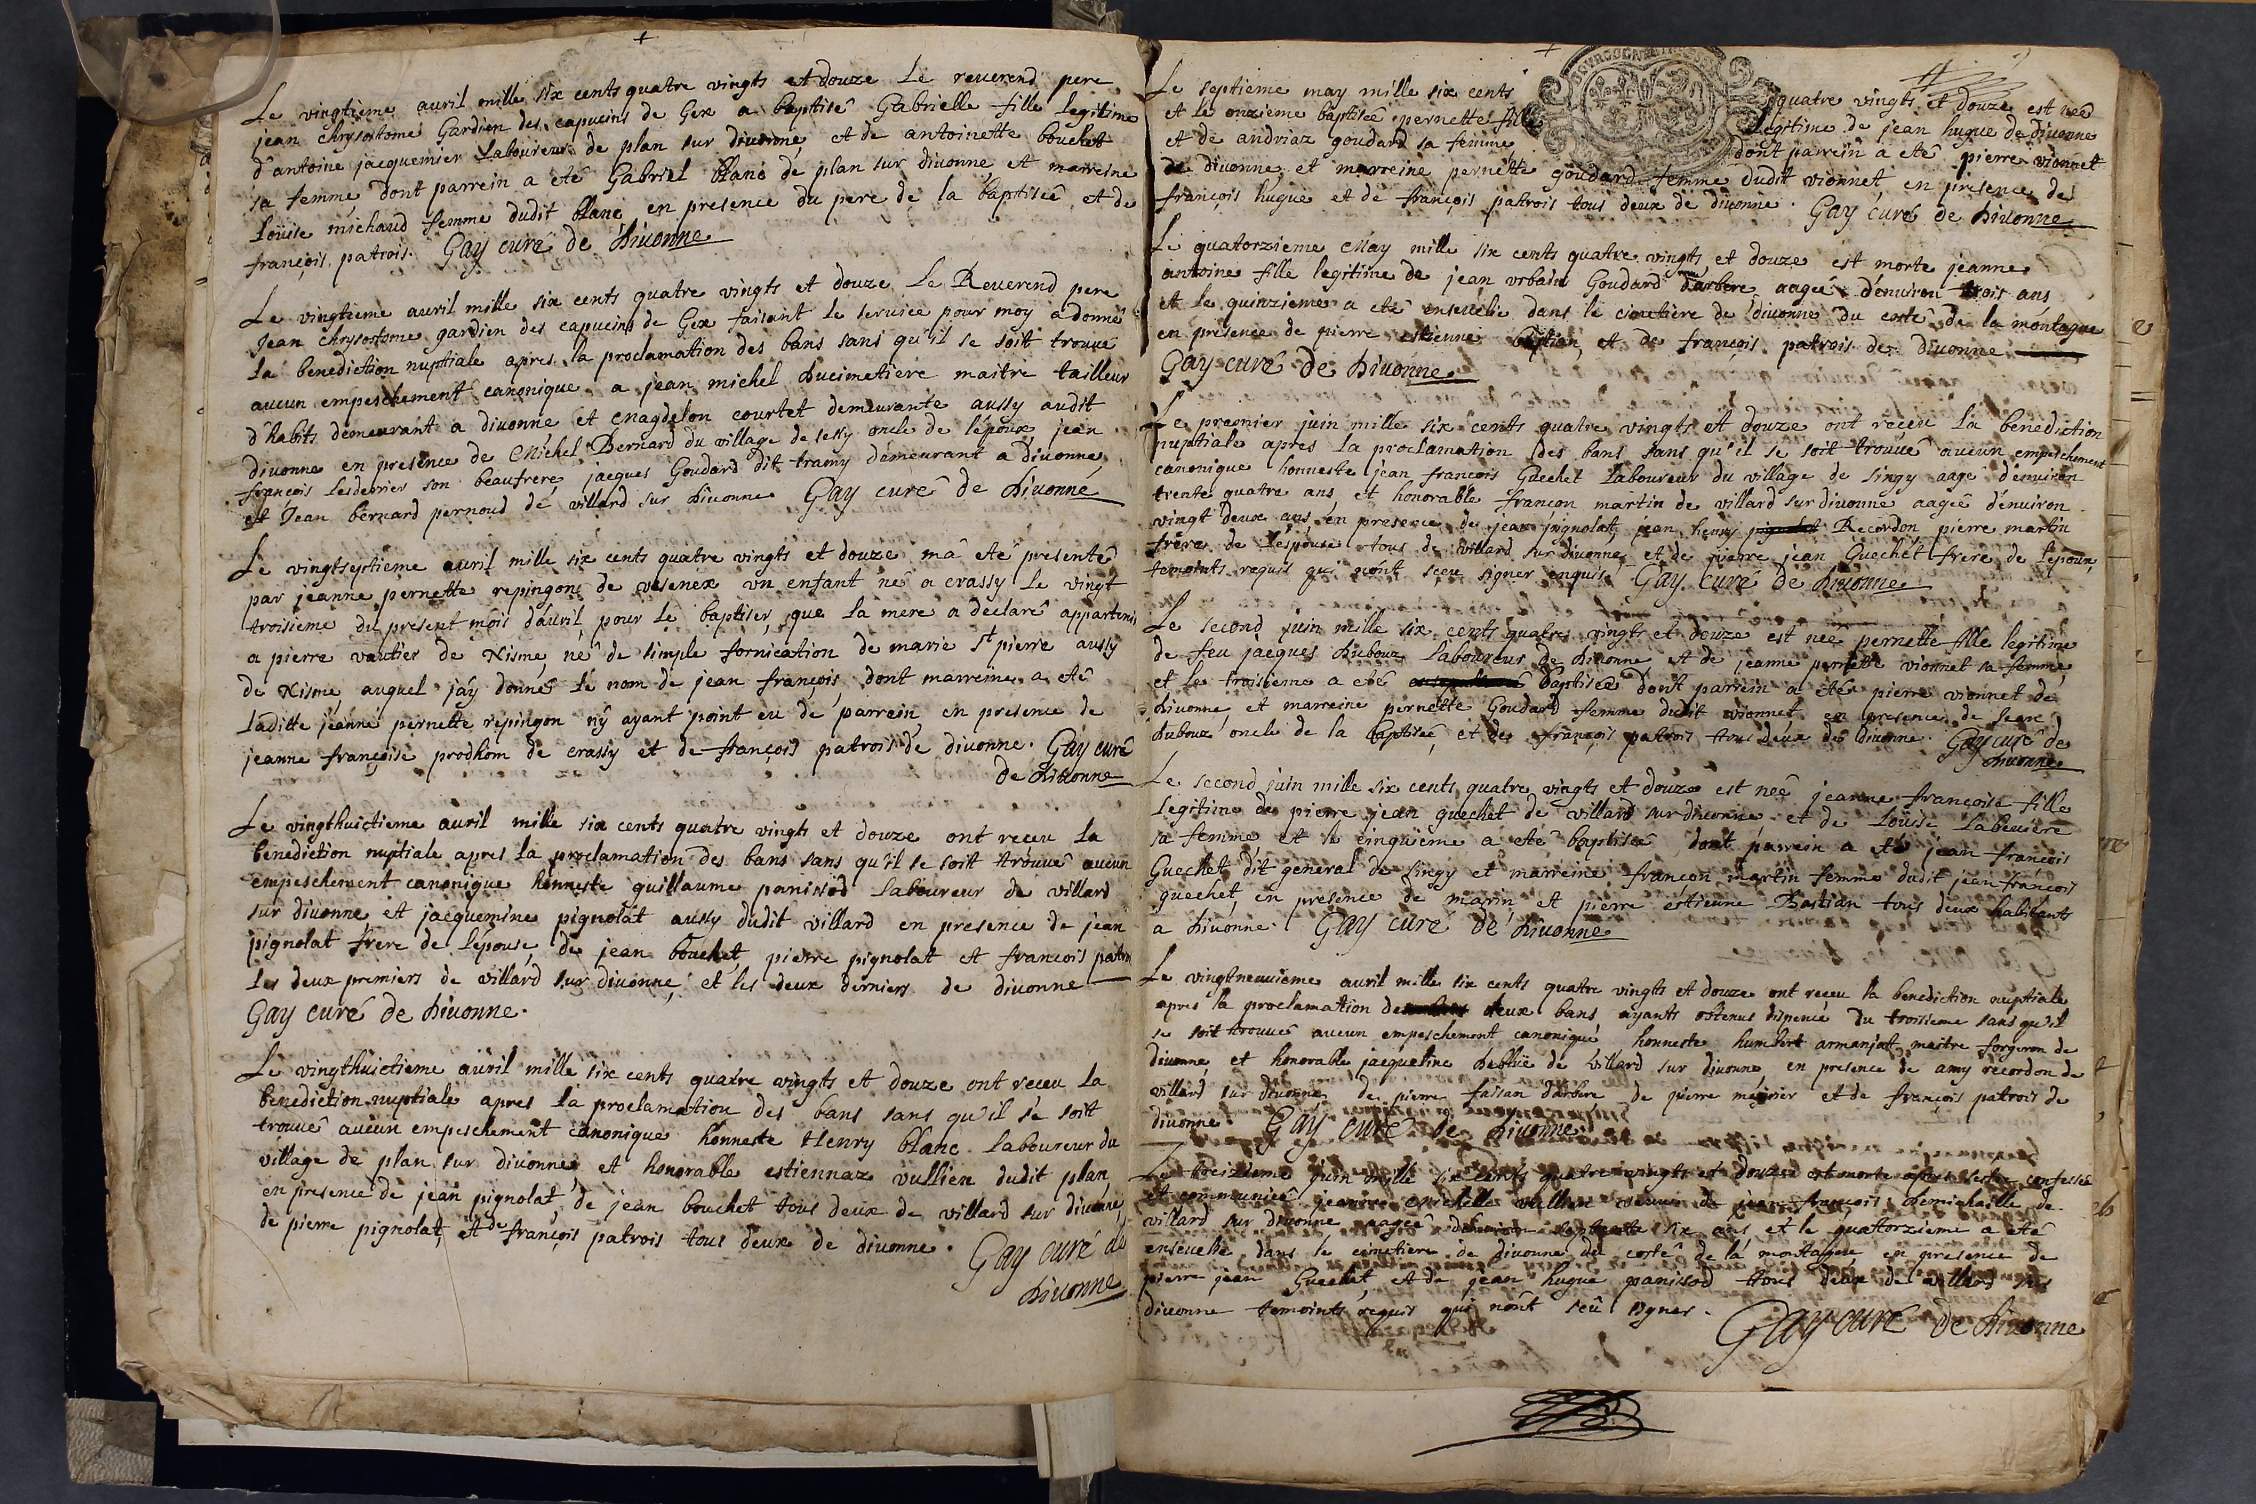 Le vingtieme auril mille six cents quatre vingts et douze Le reuerend pere
jean chrysostome Gardien des capucins de Gex a baptisé Gabrielle fille legitime
d'antoine jacquemier Laboureur de plan sur diuonne et de antoinette bouchet
sa femme dont parrein a eté Gabriel blanc de plan sur diuonne et marreine
Loüise michaud femme dudit blanc en presence du pere de la baptiseé et de
françois patrois. Gay curé de Diuonne
Le vingtieme auril mille six cents quatre vingts et douze Le Reuerend pere
Jean chrysostome gardien des capucins de Gex faisant le seruice pour moy a donné
La benediction nuptiale apres la proclamation des bans sans qu'il se soit trouué
aucun empeschement canonique a jean michel Ducimetiere maitre tailleur
d'habits demeurant a diuonne et Magdelon courtet demeurante aussy audit
diuonne en presence de Michel Bernard du village de sessy oncle de l'époux jean
françois Lesderrier son beaufrere jacques Goudard dit tramy demeurant a diuonne
et Jean bernard pernoud de villard sur Diuonne Gay curé de Diuonne
Le vingtseptieme auril mille six cents quatre vingts et douze m'a eté presenté
par jeanne pernette repingon de vesenex vn enfant né a crassy Le vingt
troisieme du present mois d'auril pour le baptiser, que la mere a declaré appartenir
a pierre vautier de Nisme, né de simple fornication de marie St pierre aussy
de Nisme, auquel j'ay donné le nom de jean françois, dont marreine a eté
Laditte jeanne pernette repingon n'y ayant point eu de parrein en presence de
jeanne françoise prodhom de crassy et de françois patrois de diuonne. Gay curé
de Diuonne
Le vingthuictieme auril mille six cents quatre vingts et douze ont receu La
benediction nuptiale apres La proclamation des bans sans qu'il se soit trouué aucun
empeschement canonique honneste guillaume panissod Laboureur de villard
sur diuonne et jacquemine pignolat aussy dudit villard en presence de jean
pignolat frere de l'épouse, de jean bouchet, pierre pignolat et francois patrois
Les deux premiers de villard sur diuonne et les deux derniers de diuonne
Gay curé de Diuonne.
Le vingthuictieme auril mille six cents quatre vingts et douze ont receu La
benediction nuptiale apres La proclamation des bans sans qu'il se soit
trouué aucun empeschement canonique honneste Henry blanc Laboureur du
village de plan sur diuonne et honorable estiennaz vullien dudit plan
en presence de jean pignolat, de jean bouchet tous deux de villard sur diuonne,
de pierre pignolat, et de françois patrois tous deux de diuonne. Gay curé de
Diuonne
Le septieme may mille six cents quatre vingts et douze est neé
et le onzieme baptiseé pernette fille legitime de jean hugue de diuonne
et de andriaz goudard sa femme dont parrein a eté pierre vionnet
de diuonne et marreine pernette goudard femme dudit vionnet en presence de
françois hugue et de françois patrois tous deux de diuonne. Gay curé de Diuonne
Le quatorzieme May mille six cents quatre vingts et douze est morte jeanne
antoine fille legitime de jean vrbain Goudard d'arbere aageé d'enuiron trois ans
et le quinzieme a eté enseuelie dans le cimetiere de diuonne du costé de la montagne
en presence de pierre estienne bastian, et de françois patrois de diuonne
Gay curé de Diuonne
Le premier juin mille six cents quatre vingts et douze ont receu La benediction
nuptiale apres La proclamation des bans sans qu'il se soit trouué aucun empeschement
canonique honneste jean francois Guechet Laboureur du village de singy aagé d'enuiron
trente quatre ans et honorable françon martin de villard sur diuonne aageé d'enuiron
vingt deux ans en presence de jean pignolat, jean henry Recordon pierre martin
frere de l'espouse tous de villard sur diuonne et de pierre jean Guechet frere de l'époux
temoints requis qui n'ont sceu signer enquis. Gay curé de Diuonne
Le second juin mille six cents quatre vingts et douze est neé pernette fille legitime
de feu jacques Dubouz Laboureur de diuonne et de jeanne pernette vionnet sa femme,
et le troisieme a eté baptiseé dont parrein a eté pierre vionnet de
diuonne et marreine pernette Goudard femme dudit vionnet en presence de Jean
Dubouz oncle de la baptiseé et de françois patrois tous deux de diuonne. Gay curé de
Diuonne
Le second juin mille six cents quatre vingts et douze est neé jeanne françoise fille
Legitime de pierre jean guechet de villard sur diuonne et de Loüise Labeuiere
sa femme et le cinquieme a eté baptiseé, dont parrein a eté jean françois
Guechet dit general de singy et marreine françon martin femme dudit jean françois
guechet en presence de marin et pierre estienne Bastian tous deux habitants
a diuonne. Gay curé de Diuonne
Le vingtneuuieme auril mille six cents quatre vingts et douze ont receu la benediction nuptiale
apres la proclamation de deux bans ayants obtenus dispence du troisieme sans qu'il
se soit trouué aucun empeschement canonique honneste humbert armanjat maitre forgeron de
diuonne et honorable jacqueline de villard sur diuonne en presence de amy recordon de
villard sur diuonne de pierre faisan d'arbere de pierre megnier et de françois patrois de
diuonne Gay curé de Diuonne
Le treizieme juin mille six cents quatre vingts et douze est morte apres s'estre confesseé
et communieé jeanne michelle vullien veuue de jean françois de
villard sur diuonne aageé d'enuiron six ans et le quattorzieme a eté
enseuelie dans le cimetiere de diuonne du costé de la montagne en presence de
pierre jean Guechet, et de jean hugue panissod tous deux de villard sur
diuonne temoints requis qui n'ont sceu signer. Gay curé de Diuonne